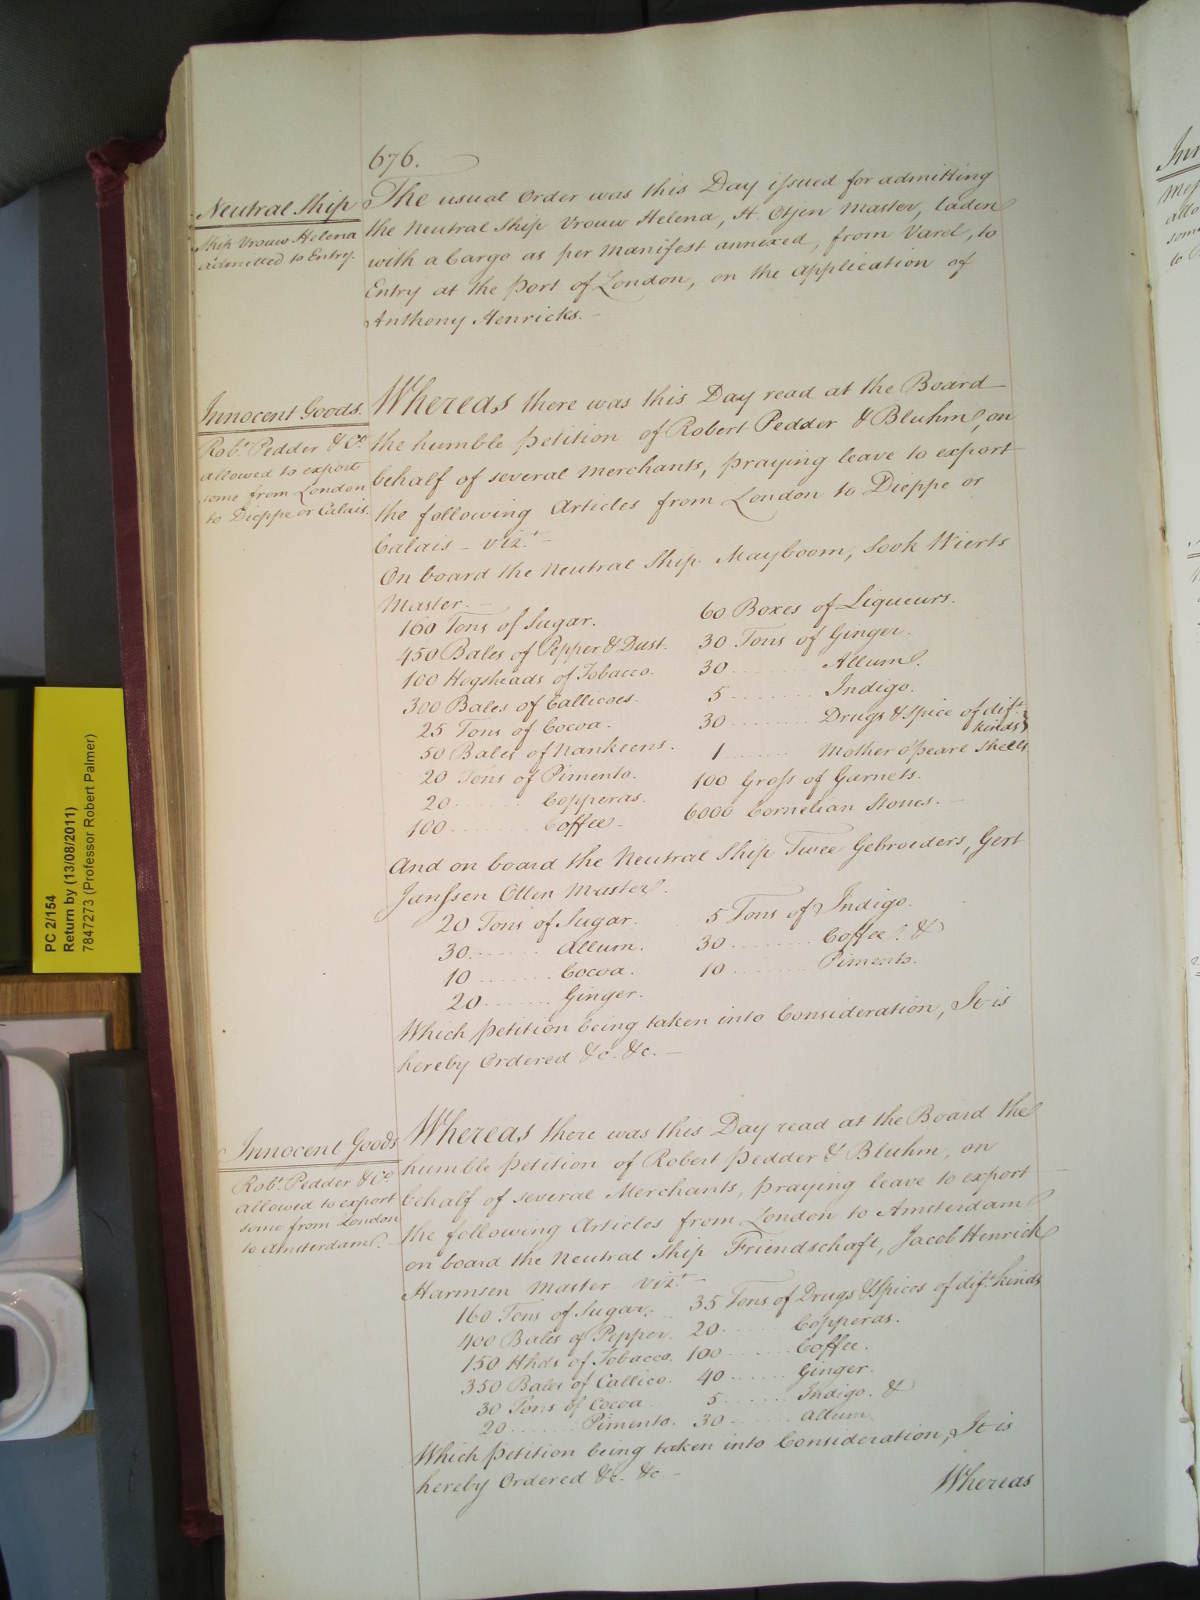 676.
Neutral Ship
Ship Vrouw Helena
admitted to Entry.
The usual Order was this Day issued for admitting
the Neutral Ship Vrouw Helena, H. Otjen Master, laden
with a Cargo as per Manifest annexed, from Varel, to
Entry at the Port of London, on the application of
Anthony Henricks.
Innocent Goods.
Robt. Pedder & Co.
allowed to export
some from London
to Dieppe or Calais.
Whereas there was this Day read at the Board
the humble Petition of Robert Pedder & Bluhm, on
behalf of several Merchants, praying leave to export
the following Articles from London to Dieppe or
Calais - vizt. -
On board the Neutral Ship Mayboom, Sook Wierts
Master.
160 Tons of Sugar. 60 Boxes of Liqueurs.
450 Bales of Pepper & Dust. 30 Tons of Ginger.
100 Hogsheads of Tobacco. 30 ........ Allum.
300 Bales of Callicoes. 5 ........ Indigo.
25 Tons of Cocoa. 30 ........ Drugs & Spice of difft. kinds
50 Bales of Nankeens. 1 ........ Mother o'Pearl Shells
20 Tons of Pimento. 100 Gross of Garnets.
20 ........ Copperas. 6000 Cornelian Stones. -
100 ........ Coffee.
And on board the Neutral Ship Twee Gebroeders, Gert
Janssen Otten Master.
20 Tons of Sugar. 5 Tons of Indigo.
30 ........ Allum. 30 ........ Coffee. &
10 ........ Cocoa. 10 ........ Pimento.
20 ........ Ginger.
Which Petition being taken into Consideration, It is
hereby Ordered &c. &c. -
Innocent Goods
Robt. Pedder & Co.
allowed to export
some from London
to Amsterdam.
Whereas there was this Day read at the Board the
humble Petition of Robert Pedder & Bluhm, on
behalf of several Merchants, praying leave to export
the following Articles from London to Amsterdam
on board the Neutral Ship Friendschaft, Jacob Henrick
Harmsen Master vizt. -
160 Tons of Sugar. 35 Tons of Drugs & Spices of difft. kinds
400 Bales of Pepper. 20 ........ Copperas.
150 Hhds of Tobacco. 100 ........ Coffee.
350 Bales of Callico. 40 ........ Ginger.
30 Tons of Cocoa. 5 ........ Indigo. &
20 ........ Pimento. 30 ........ Allum.
Which Petition being taken into Consideration, It is
hereby Ordered &c. &c -
Whereas
PC 2/154
Return by (13/08/2011)
7847273 (Professor Robert Palmer)